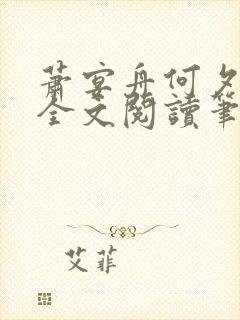 蕭宴舟何夕
全文閱讀筆
艾菲